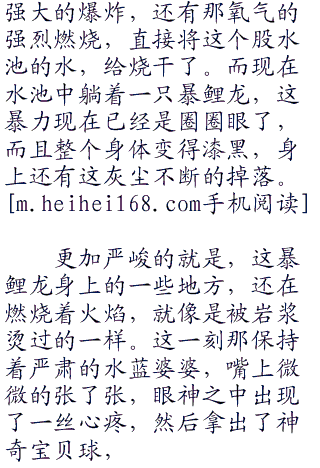 强大的爆炸，还有那氧气的
强烈燃烧，直接将这个股水
池的水，给烧干了。而现在
水池中躺着一只暴鲤龙，这
暴力现在已经是圈圈眼了，
而且整个身体变得漆黑，身
上还有这灰尘不断的掉落。
[m.heihei168.com手机阅读]
更加严峻的就是，这暴
鲤龙身上的一些地方，还在
燃烧着火焰，就像是被岩浆
烫过的一样。这一刻那保持
着严肃的水蓝婆婆，嘴上微
微的张了张，眼神之中出现
了一丝心疼，然后拿出了神
奇宝贝球，